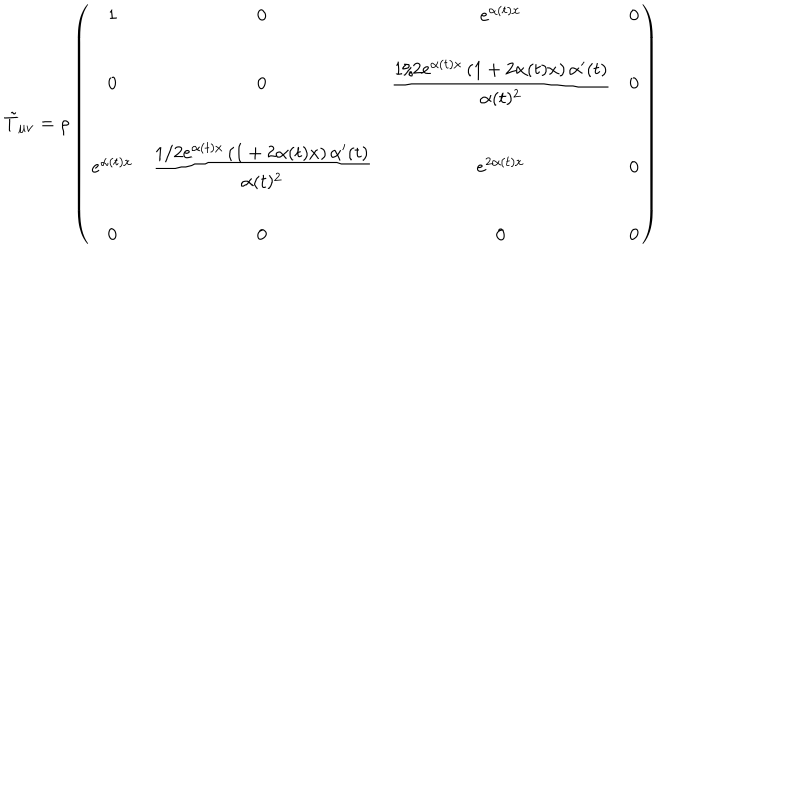 \tilde{T}_{\mu\nu} = \rho \begin{pmatrix} 1 & 0 & e^{\alpha(t)x} & 0 \\ 0 & 0 & \frac{1\%2e^{\alpha(t)x}\,(1+2\alpha(t)x)\,\alpha'(t)}{\alpha(t)^2} & 0 \\ e^{\alpha(t)x} & \frac{1/2e^{\alpha(t)x}\,(1+2\alpha(t)x)\,\alpha'(t)}{\alpha(t)^2} & e^{2\alpha(t)x} & 0 \\ 0 & 0 & 0 & 0 \end{pmatrix}